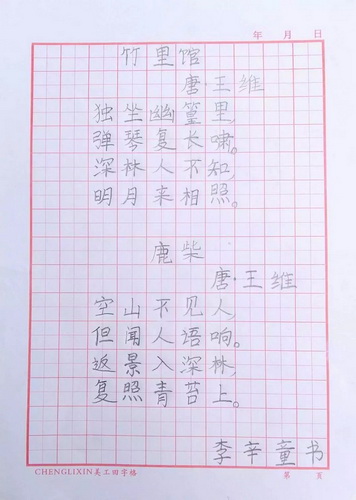 年 月 日
竹里馆
唐·王维
独坐幽篁里,
弹琴复长啸。
深林人不知,
明月来相照。
鹿柴
唐·王维
空山不见人,
但闻人语响。
返景入深林,
复照青苔上。
李辛童书
CHENGLIXIN美工田字格 第 页